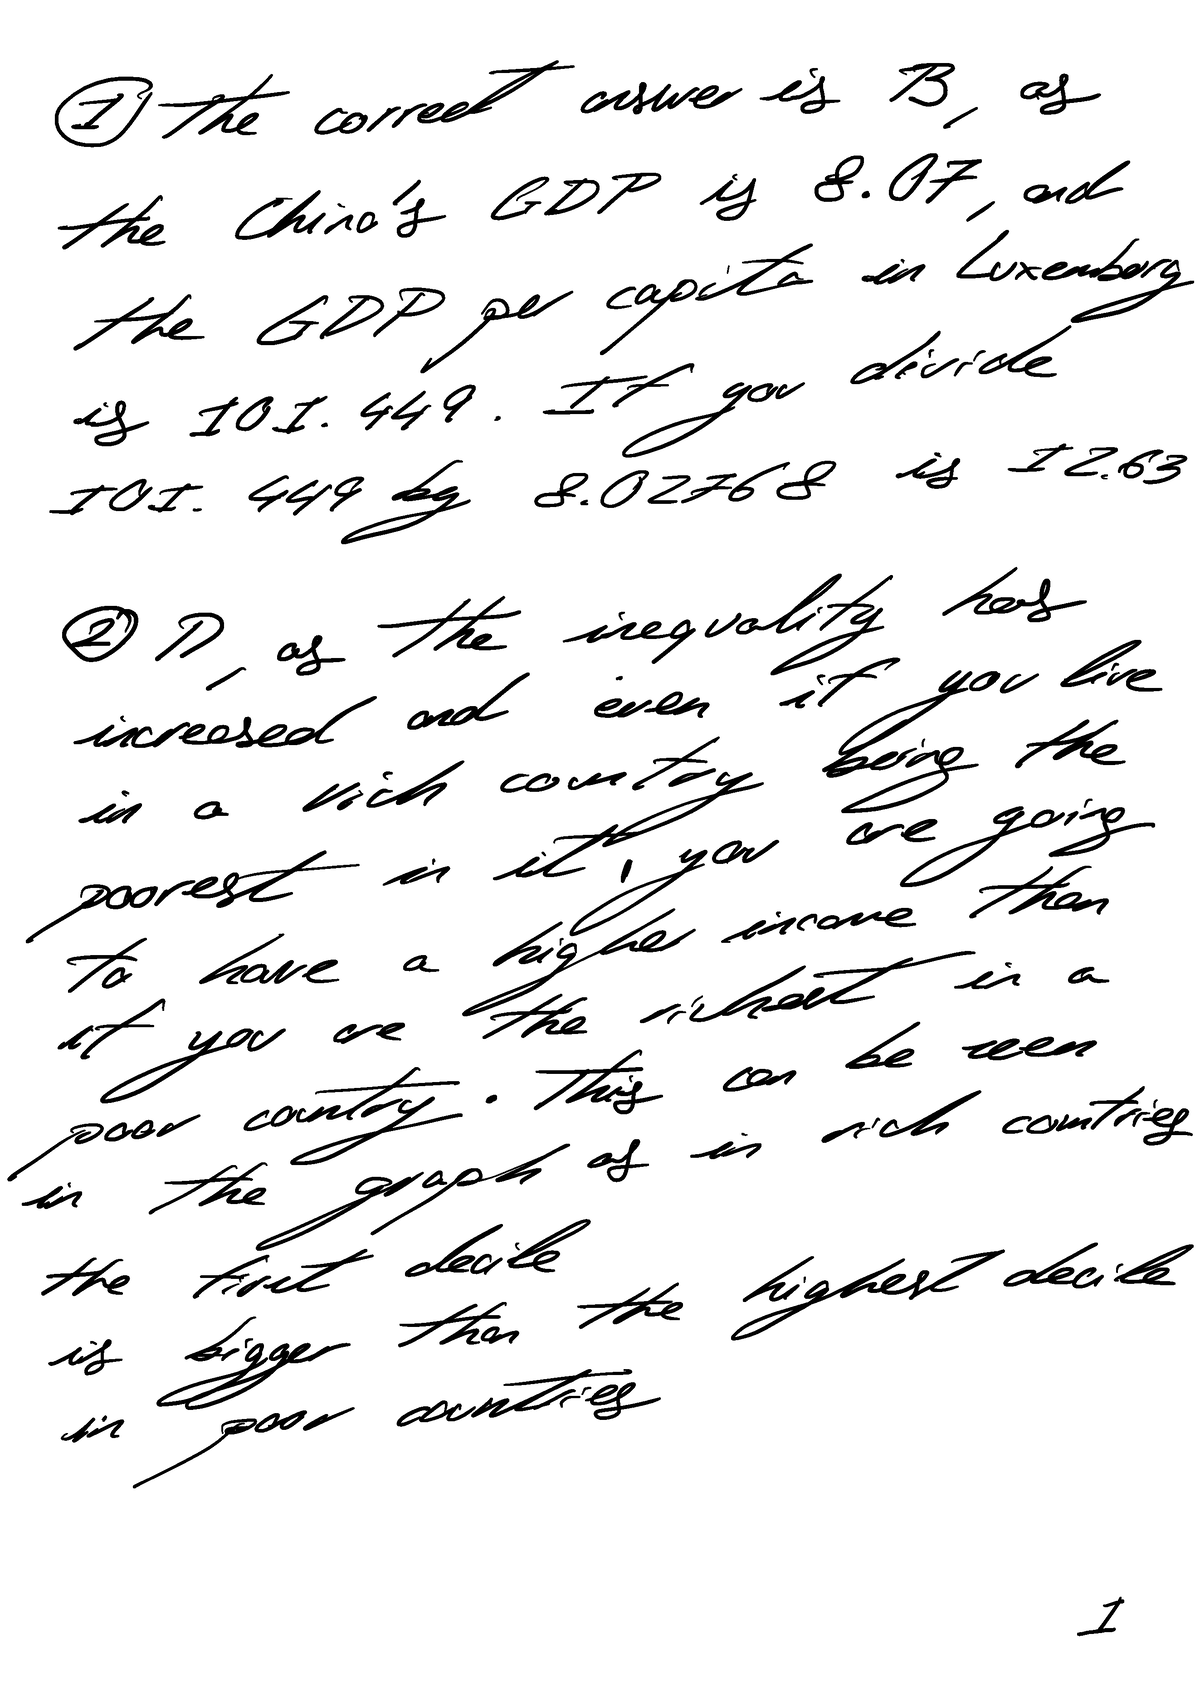 ① The correct answer is B, as
the China's GDP is 8.07, and
the GDP per capita in Luxemborg
is 101.449. If you divide
101.449 by 8.02768 is 12.63
② D, as the inequality has
increased and even if you live
in a rich country being the
poorest in it, you are going
to have a higher income than
if you are the richest in a
poor country. This can be seen
in the graph as in rich countries
the first decile
is bigger than the highest decile
in poor countries
1